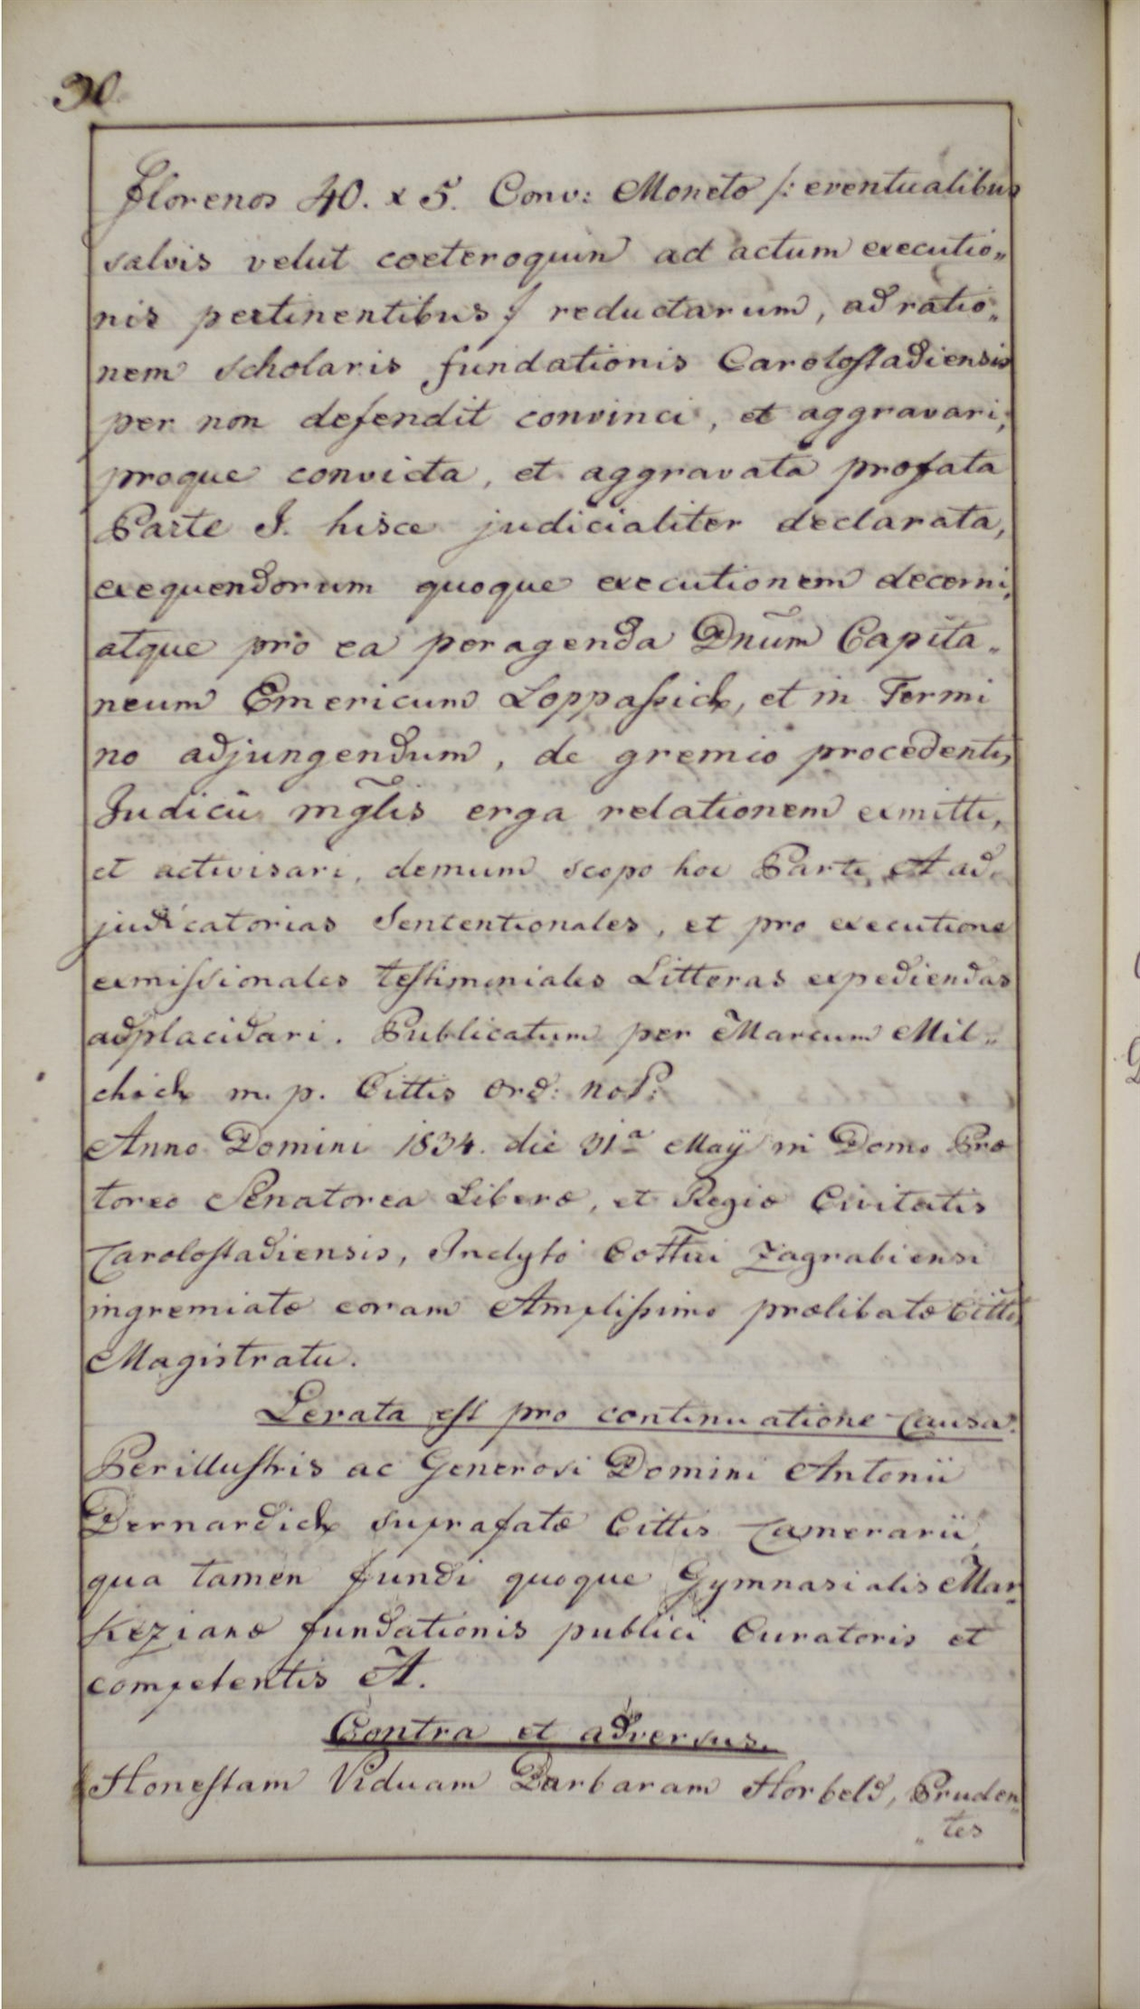 30.
Florenos 40. x 5. Conv: Moneto /: eventualibus
salvis velut coeteroquin ad actum executio„
nis pertinentibus :/ reductarum, ad ratio„
nem scholaris fundationis Carolostadiensis
per non defendit convinci, et aggravari,
proque convicta, et aggravata profata
Parte I. hisce judicialiter declarata,
exequendorum quoque executionem decerni,
atque pro ea peragenda Dnūm Capita„
neum Emericum Loppassich, et in Termi
no adjungendum, de gremio procedentis
Judicii mglis erga relationem exmitti,
et activisari, demum scopo hoc Parti A ad„
judicatorias Sententionales, et pro executione
exmissionales testimoniales Litteras expediendas
adplacidari. Publicatum per Marcum Mil„
chich m. p. Cittis Ord: noP:
Anno Domini 1834. die 31ª Maÿ in Domo Prœ
toreo Senatorea Liberœ, et Regiœ Civitatis
Carolostadiensis, Indyto Cottui Zagrabiensi
ingremiatœ coram Amplissimo prœlibatœ Cittis
Magistratu.
Levata est pro continuatione Causa.
Perillustris ac Generosi Domini Antonii
Bernardich suprafatœ Cittis Camerarii,
qua tamen fundi quoque Gymnasialis Mar„
kezianœ fundationis publici Curatoris et
competentis A.
Contra et adversus.
Honestam Viduam Barbaram Horbeld, Pruden„
„tes